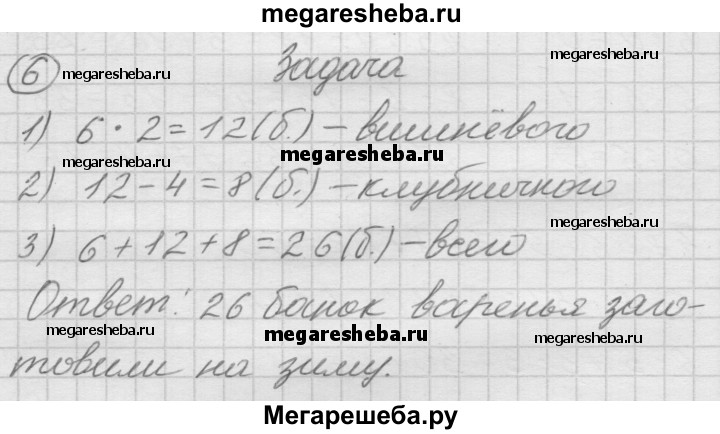 megaresheba.ru
6 megaresheba.ru Задача megaresheba.ru
1) 6 · 2 = 12 (б.) – вишнёвого
megaresheba.ru megaresheba.ru
2) 12 – 4 = 8 (б.) – клубничного
megaresheba.ru
3) 6 + 12 + 8 = 26 (б.) – всего
Ответ: 26 банок варенья заго-
megaresheba.ru megaresheba.ru megaresheba.ru
товили на зиму.
Мегарешеба.ру